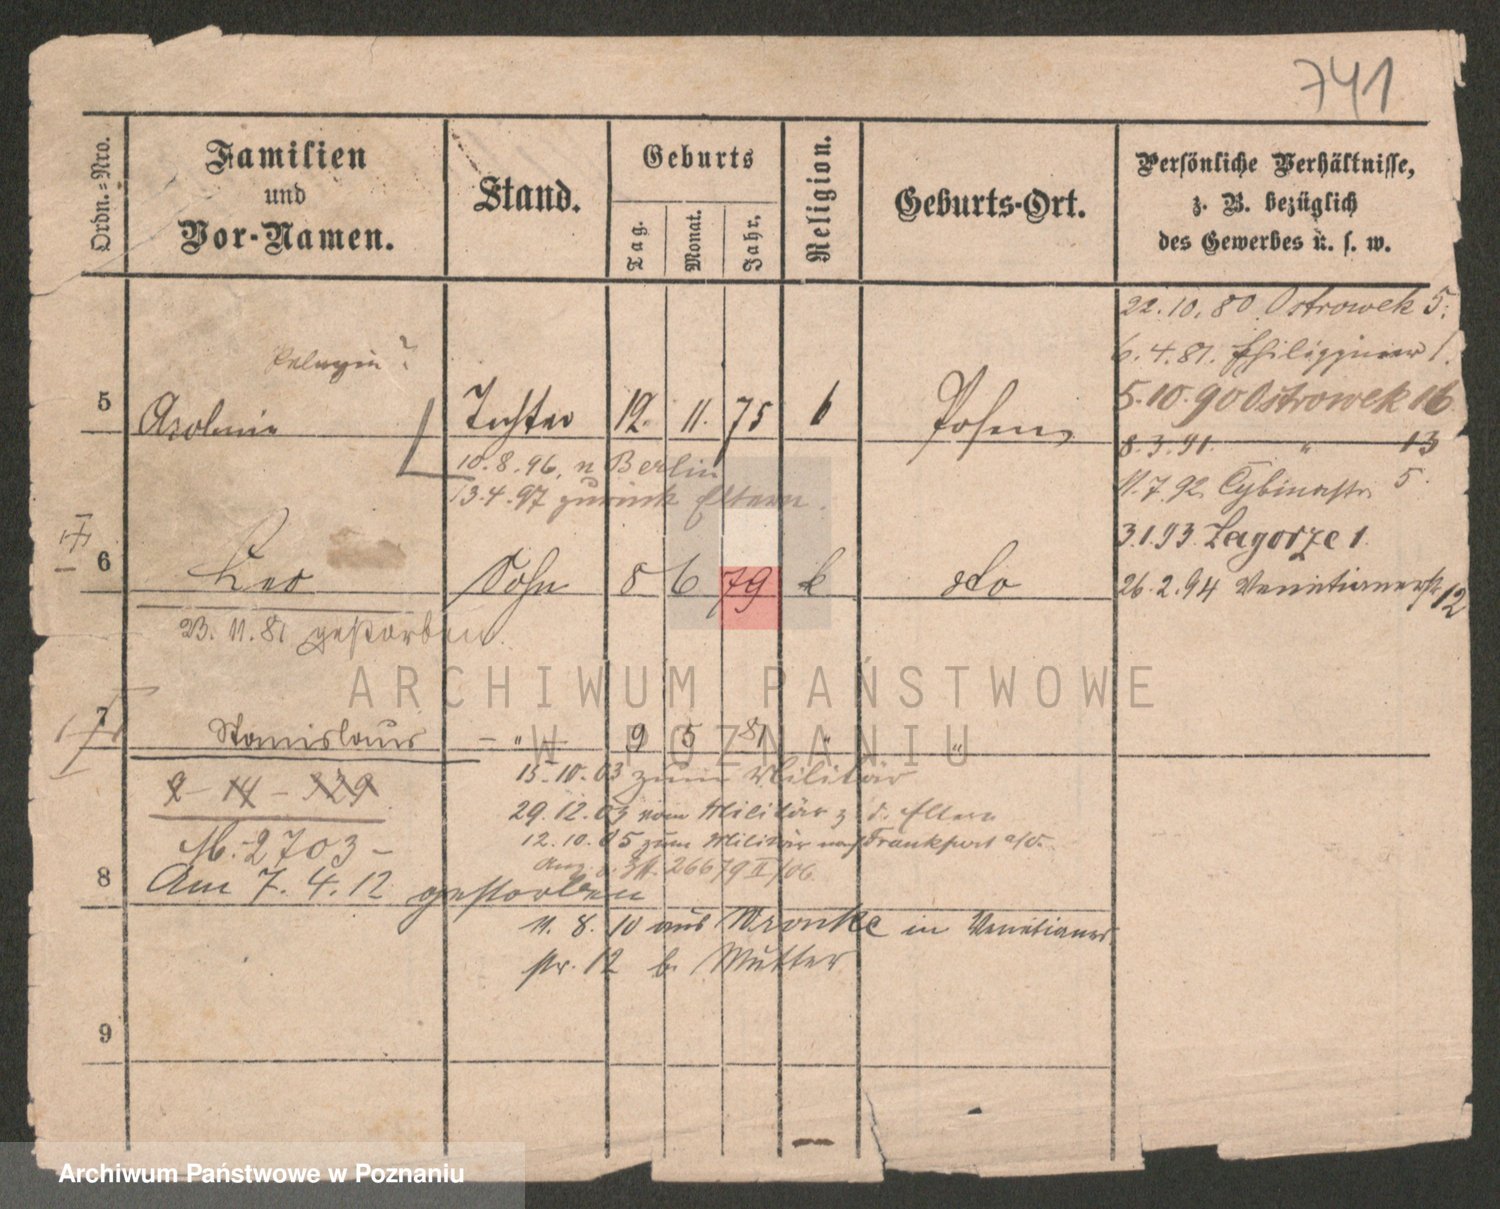 741
Ordn.=Nro.
Familien
und
Vor-Namen.
Stand.
Geburts
Tag.
Monat.
Jahr.
Religion.
Geburts-Ort.
Persönliche Verhältnisse,
z. B. bezüglich
des Gewerbes u. s. w.
22.10.80 Ostrowek 5.
6.4.81.
5.10.90 Ostrowek 16
8.3.91. " 13
11.7.92. Cybinastr. 5.
3.1.93. Zagorze 1.
26.2.94 Venetianerstr 12
Pelagia?
5 Tochter 12. 11. 75 k Posen
10.8.96. n Berlin
13.4.97 zurück Eltern.
6 Leo Sohn 8 6 79 k do
23.11.81 gestorben.
7 Stanislaus - " - 9 5 81 " "
15.10.03 zum Militär
9 - 14 - 329
29.12.03 vom Militär z. d. Eltern
M.-2703-
12.10.05 zum Militär nach Frankfurt a/O.
26679 II/06
8 Am 7.4.12 gestorben
11.8.10 aus Wronke in Venetianer
str. 12 b. Mutter
9
ARCHIWUM PAŃSTWOWE
W POZNANIU
Archiwum Państwowe w Poznaniu